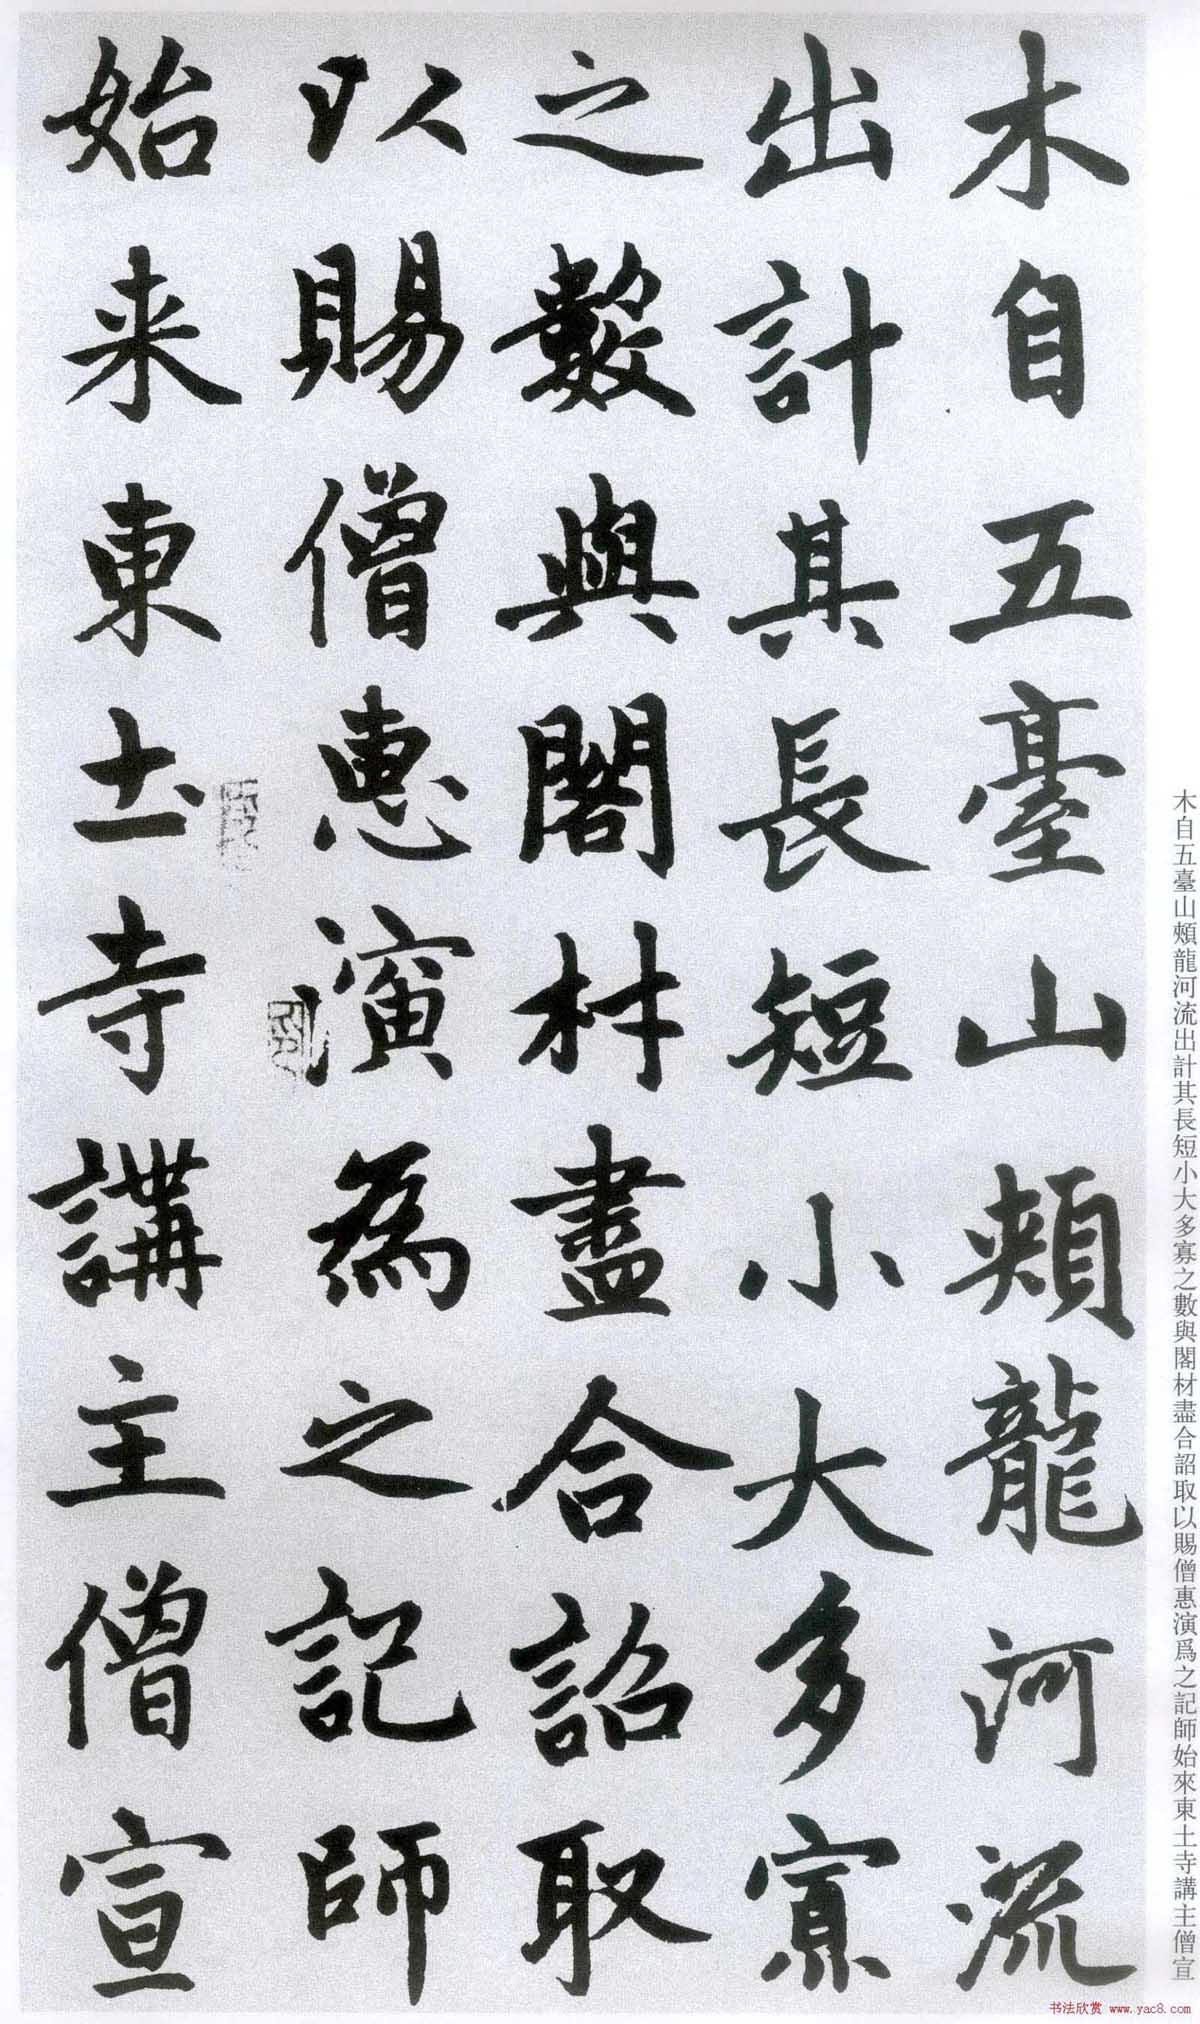 木自五臺山頰龍河流
出計其長短小大多寡
之數與閣材盡合詔取
以賜僧惠演為之記師
始来東土寺講主僧宣
木自五臺山頰龍河流出計其長短小大多寡之數與閣材盡合詔取以賜僧惠演爲之記師始來東土寺講主僧宣
书法欣赏 www.yac8.com